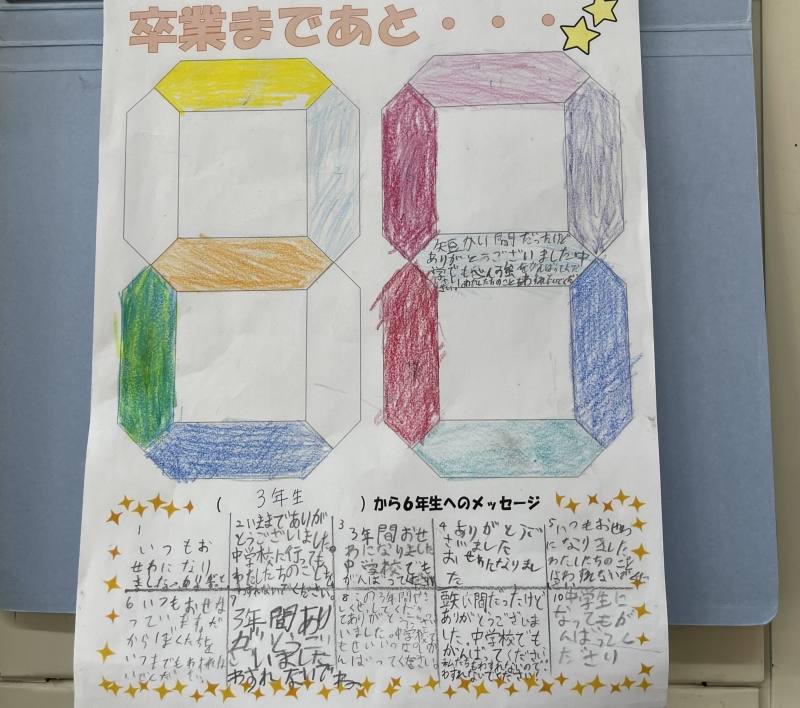 卒業まであと・・・
短かい間だったけど
ありがとうございました中
学でもべん強をがんばってくだ
さい！わたしたちのことをわすれないでください
(3年生)から6年生へのメッセージ
1
いつもお
せわになり
ました
2いままでありが
とうございました。
中学校に行っても
わたしたちのことを
わすれないでください。
3
3年間おせ
わになりました
中学校でも
がんばってください
4
ありがとうご
ざいました
おせわになりまし
た
5いつもおせわ
になりました
わたしたちのこと
はわすれないでください
6いつもおせわ
っていますが
からぼくん達
いつまでもわすれな
いでください
7
3年間あり
がとうござ
いました
わすれないで
ね
8
の3年間
してくれて
ありがとう
いました。中学校
短い間だったけど
ありがとうございま
した、中学校でも
がんばってください
私たちもわすれないので、
わすれないでください！
10中学生に
なってもが
んばってく
ださい